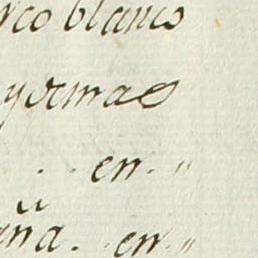 rco blanco
y demas
. . en. "
aña. . en. "